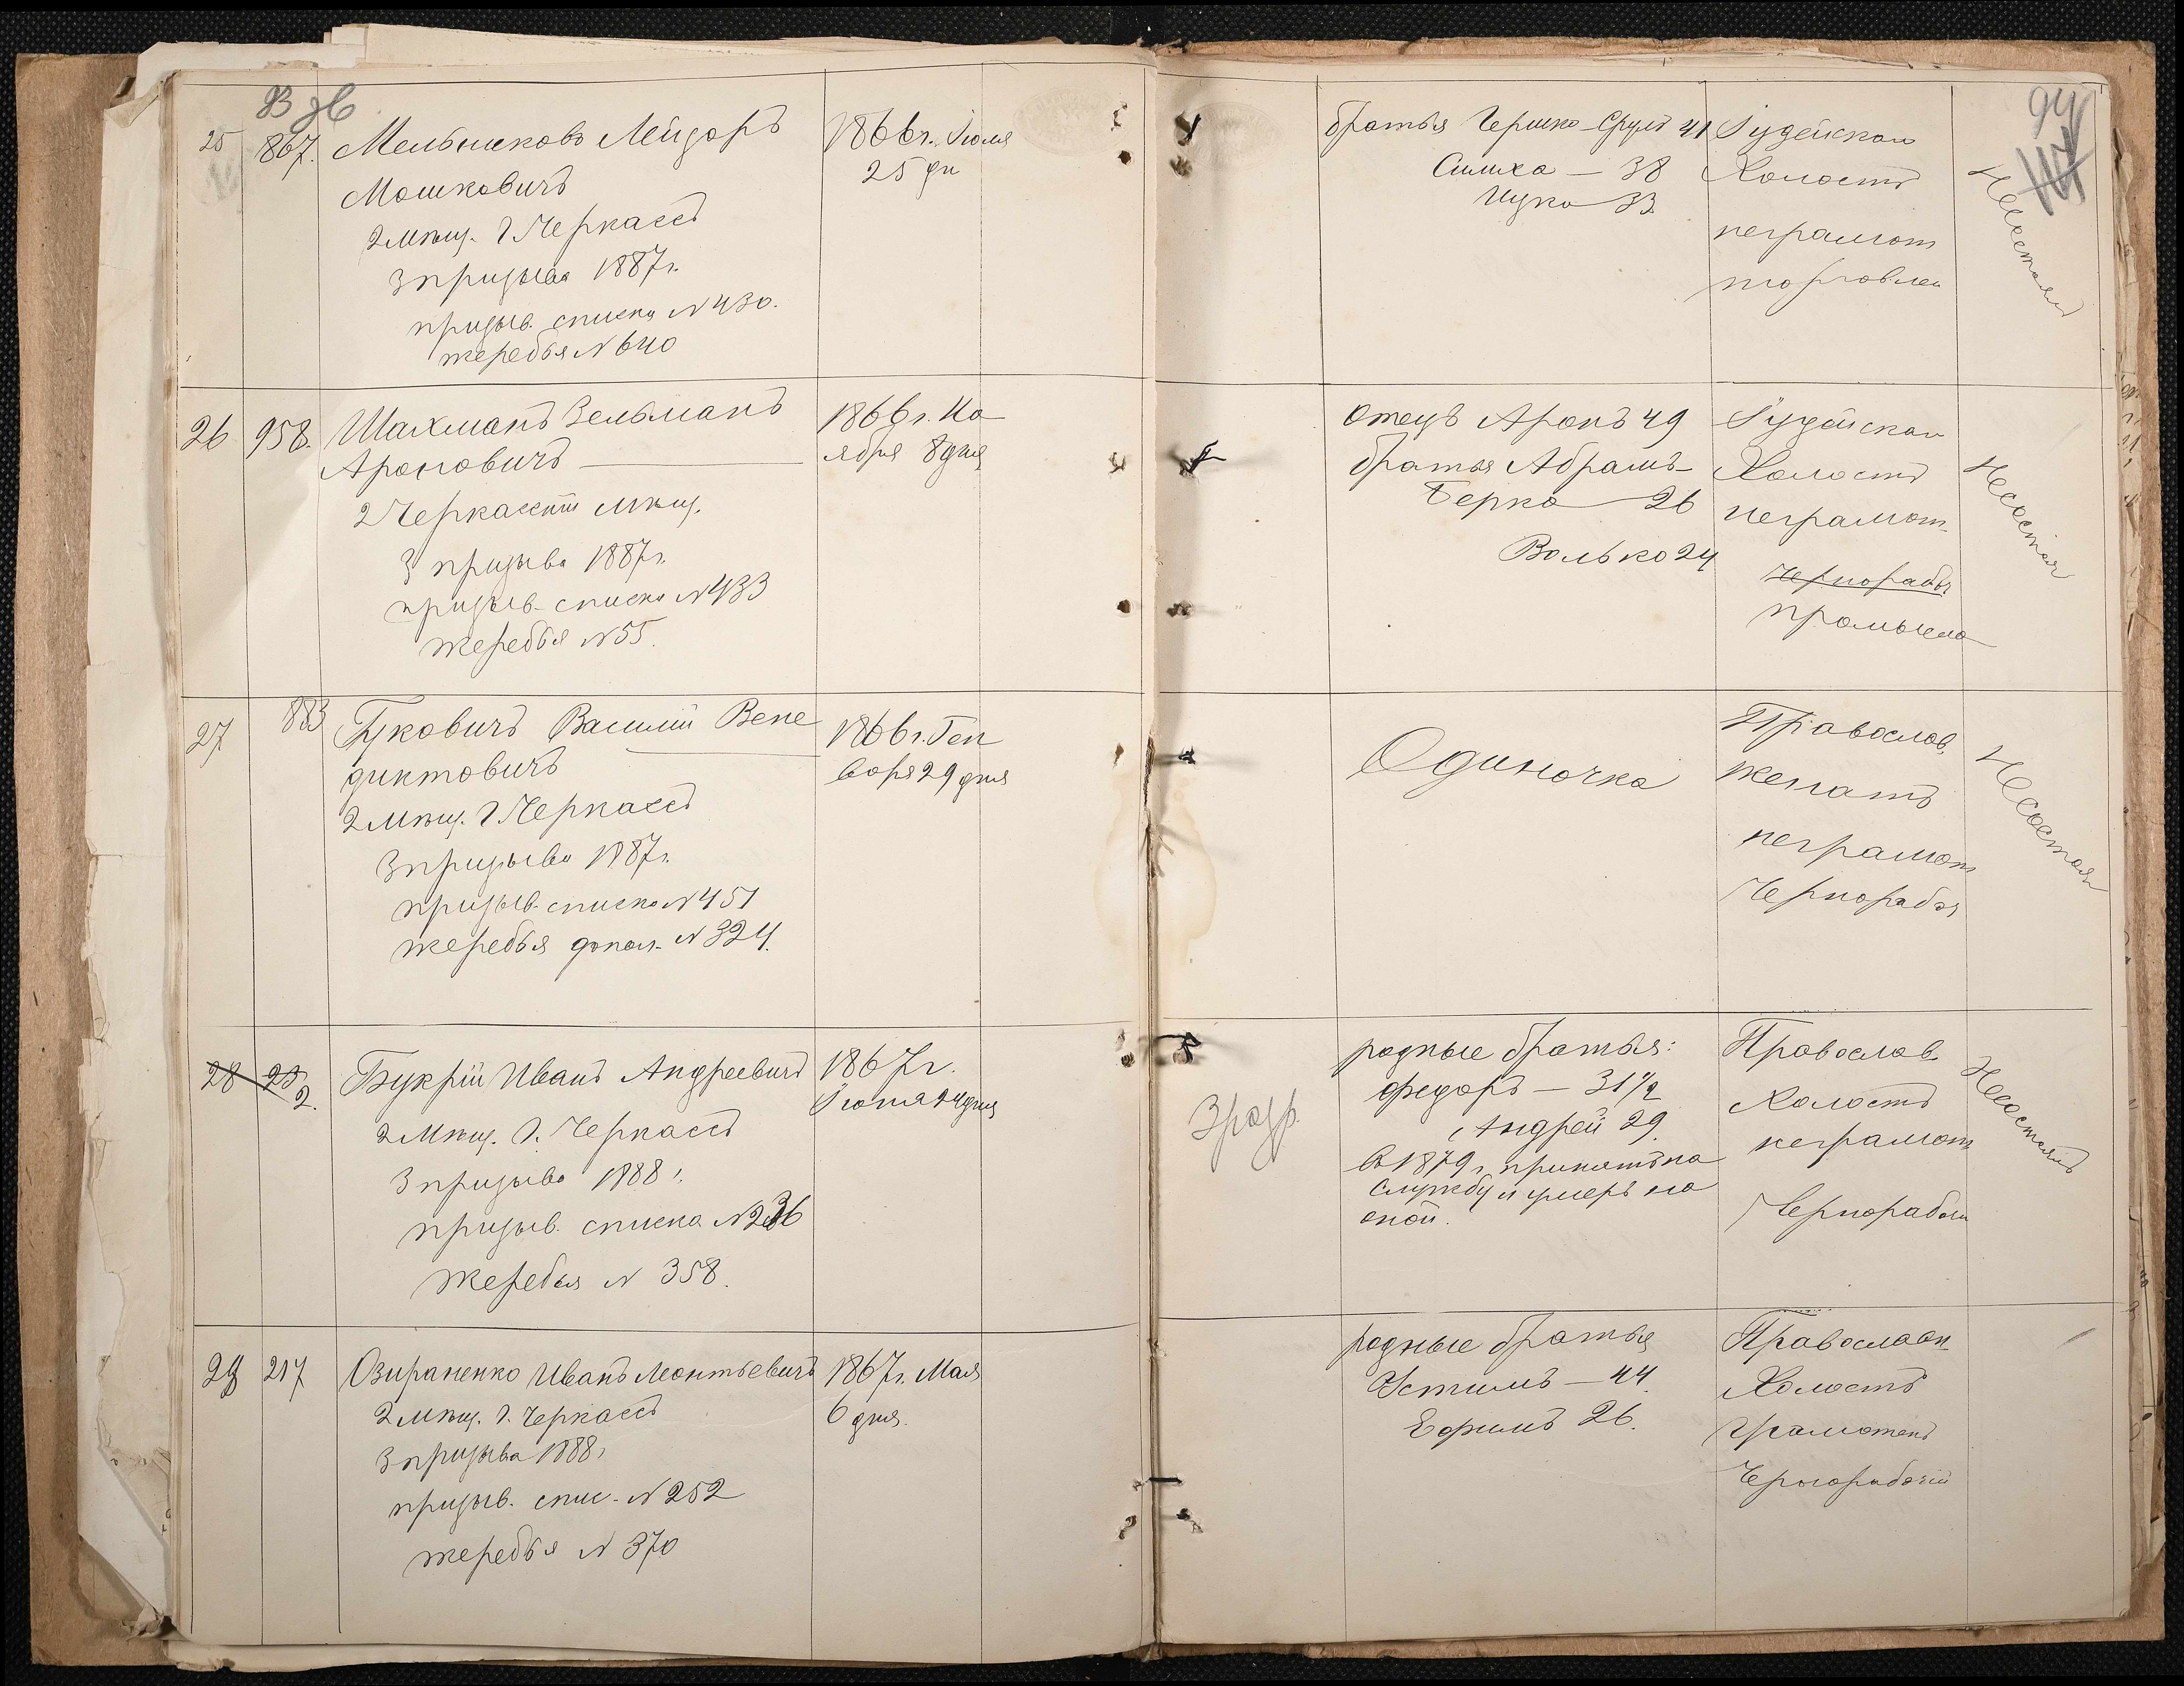 25
867.
Мельниковъ Лейзоръ
Мошковичъ
2 Мѣщ. г. Черкассъ
3 призыва 1887 г.
призыв. списка № 430.
жеребья № 640
1866 г. Іюля
25 дн
братья Гершко-Сруль 41
Симха — 38
Ицко 33.
Іудейскаго
Холостъ
неграмот
торговлей
Несостоялъ
94
26
958.
Шахманъ Зельманъ
Ароновичъ
2 Черкасск мѣщ.
3 призыва 1887 г.
призыв. списка № 433
жеребья № 55.
1866 г. Но
ября 8 дня
отецъ Аронъ 49
братья Абрамъ-
Берко 26
Волько 24
Іудейскаго
Холостъ
неграмот.
чернорабоч
промысло
Несостоял
27
883
Гуковичъ Василій Вене
диктовичъ
2 Мѣщ. г. Черкассъ
3 призыва 1887 г.
призыв. списка № 451
жеребья допол. № 324.
1866 г. Ген
варя 29 дня
Одиночка
Православ.
женатъ
неграмот
Чернорабоч
Несостоял
28
2.
Букрій Иванъ Андреевичъ
2 Мѣщ. г. Черкассъ
3 призыва 1888 г.
призыв. списка № 236
жеребья № 358.
1867 г.
Іюня 24 дня
3 разр.
родные братья:
Федоръ — 31 1/2
Андрей 29.
въ 1879 г. принятъ на
службу и умеръ на
оной.
Православ.
Холостъ
неграмотн
Чернорабочи
Несостоялъ
217
Озираненко Иванъ Леонтьевичъ
2 мѣщ. г. Черкассъ
3 призыва 1888 г.
призыв. спис. № 252
жеребья № 370
1867 г. Мая
6 дня.
родные братья
Устимъ — 44.
Ефимъ 26.
Православн
Холостъ
Грамотенъ
Чернорабочій